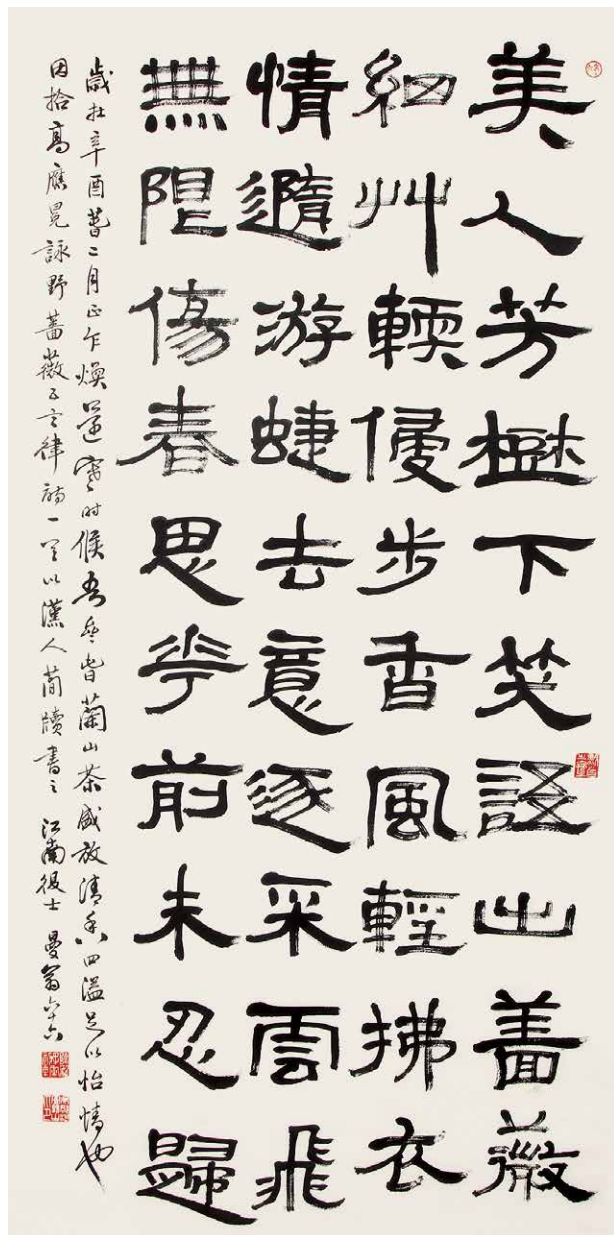 美人芳樾下笑語出薔薇
細艸輭侵步香風輕拂衣
情隨游蜨去意逐采雲飛
無限傷春思花前未忍歸
歲在辛酉暮二月正乍煖還寒時候吾蘭山茶盛放清香四溢足以怡情也
因拾高應冕詠野薔薇五言律詩一首以漢人簡牘書之 江南後士 曼翁